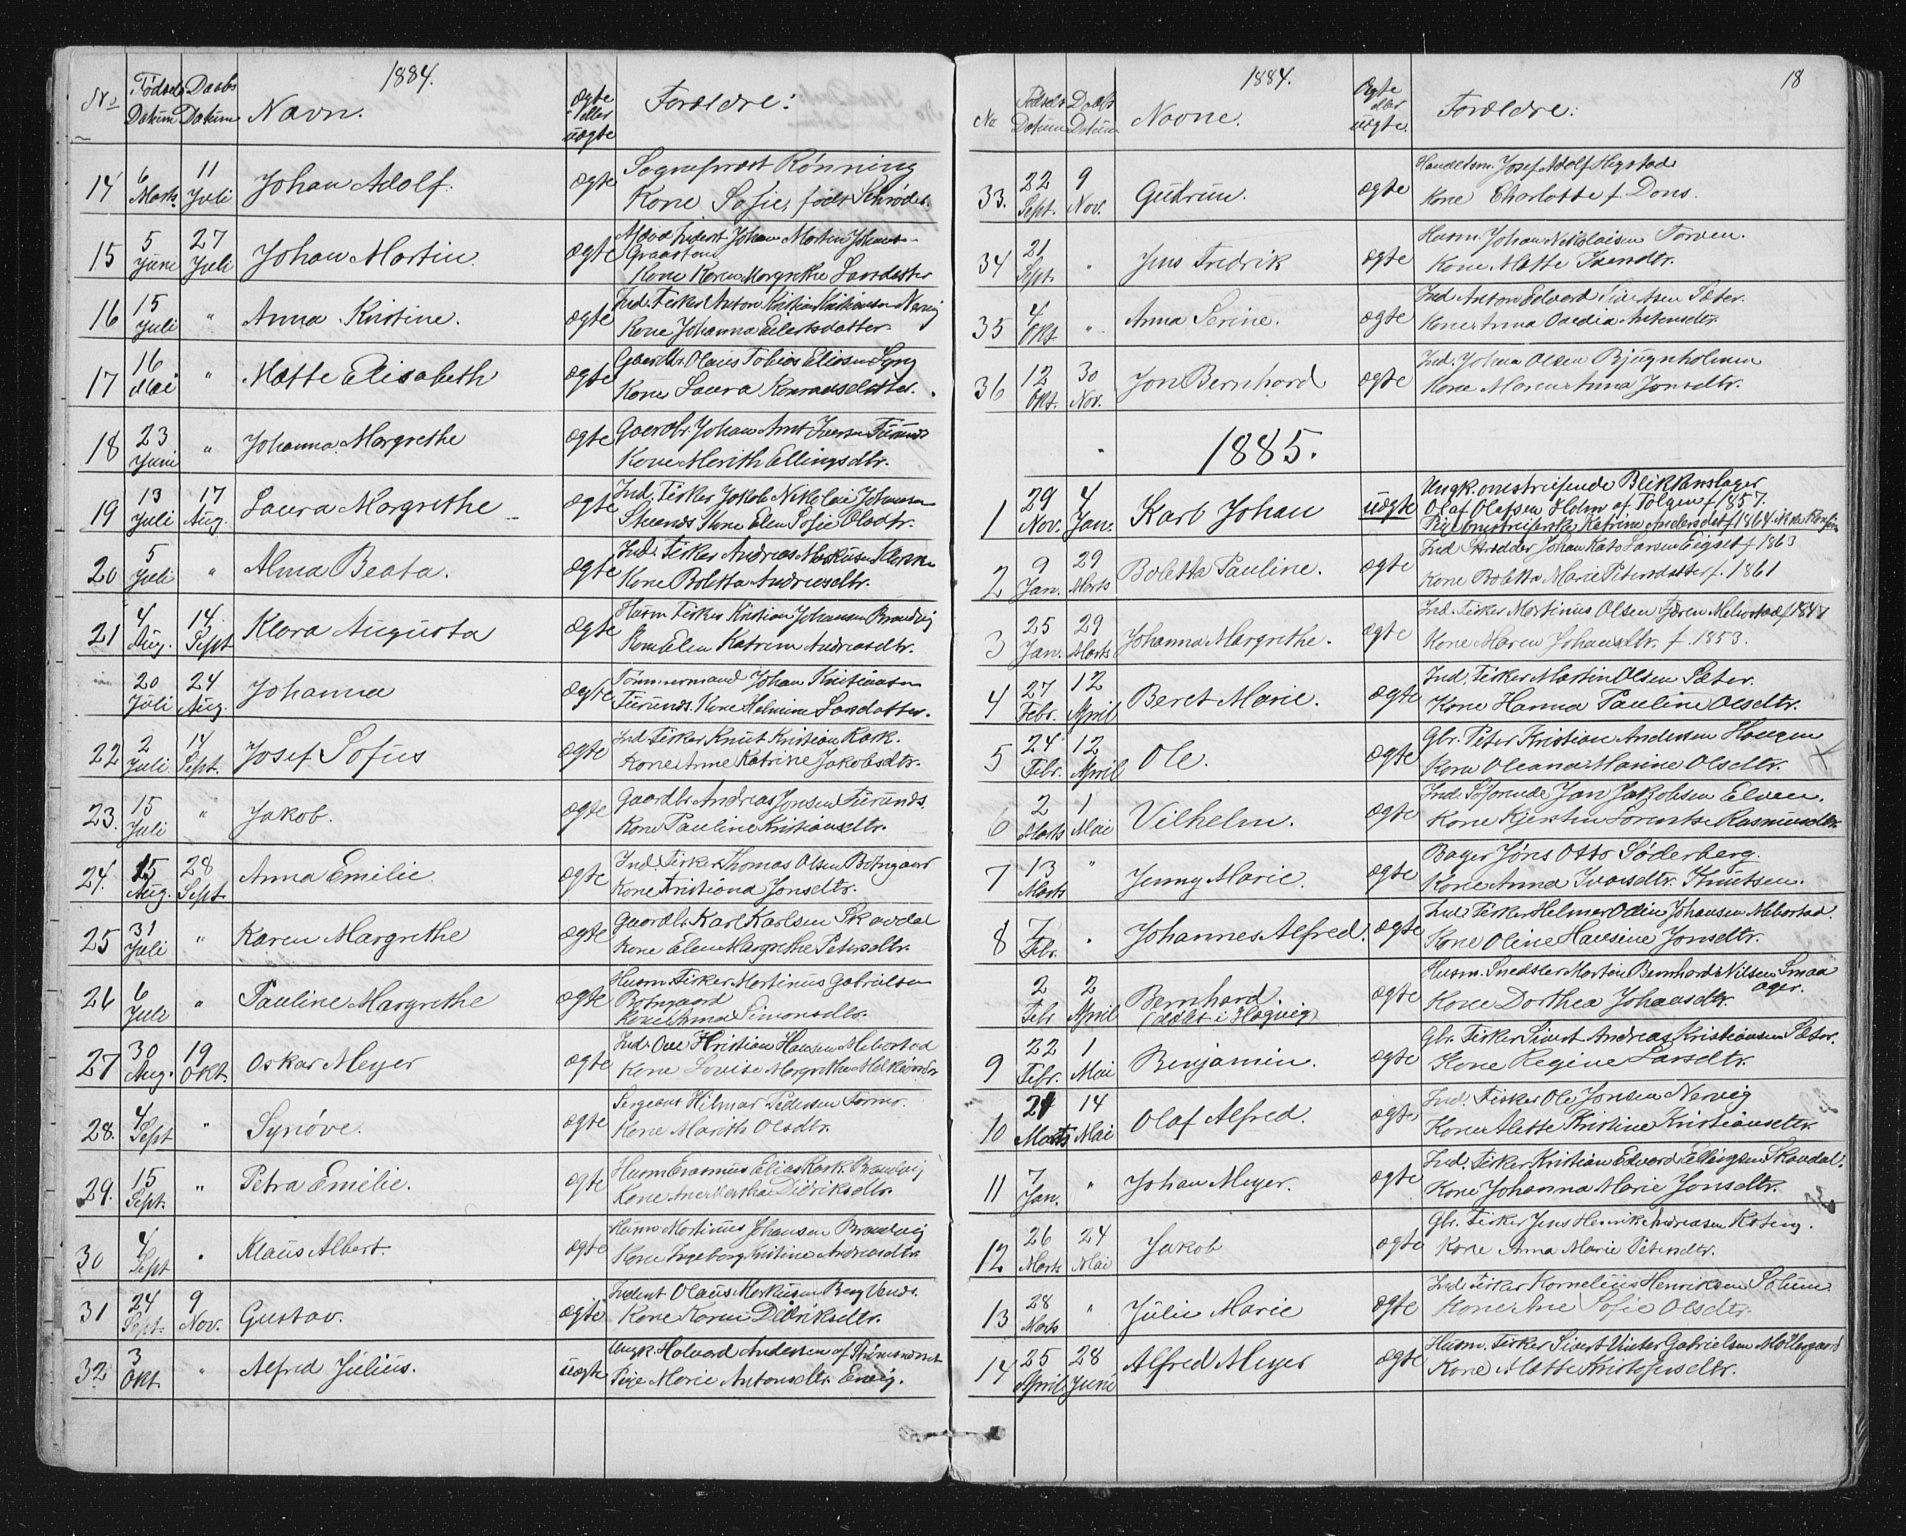 1884.
No
Fødsels Datum
Daabs Datum
Navn.
Ægte eller uægte
Forældre:
14 6 Marts. 11 Juli Johan Adolf. ægte Sognepræst Rønning
Kone Sofie, født Schrøder.
15 5 Juni 27 Juli Johan Martin. ægte Johan Martin
Kone Karen Margrethe Larsdatter
16 15 Juli " Anna Kristine. ægte Ind. Fisker Anton Kristian Kristiansen Nervig
Kone Johanna Eilertsdatter.
17 16 Mai " Mette Elisabeth ægte Gaardbr. Olaus Tobias Eliasen
Kone Laura Konradsdatter.
18 23 Juni " Johanna Margrethe ægte Gaardbr. Johan Arnt Iversen
Kone Merith Ellingsdtr.
19 13 Juli 17 Aug. Laura Margrethe ægte Ind. Fisker Jakob Nikolai Johansen
Kone Elen Sofie Olsdtr.
20 5 Juli " Alma Beata. ægte Ind. Fisker Andreas Markusen
Kone Boletta Andreasdtr.
21 4 Aug. 14 Sept Klara Augusta ægte Husm. Fisker Kristian Johansen Brandvig
Kone Elen Katrine Andreasdtr.
20 Juli 24 Aug. Johanna ægte Tømmermand Johan Kristiansen
Furunds. Kone Helmine Larsdatter.
22 2 Juli 14 Sept. Josef Sofus ægte Ind. Fisker Knut Kristian Rask.
Kone Anne Katrine Jakobsdtr.
23. 15 Juli " Jakob. ægte Gaardbr. Andreas Jonsen Furunds.
Kone Pauline Kristiansdtr.
24. 15 Aug. 28 Sept. Anna Emilie. ægte Ind. Fisker Thomas Olsen Botngaard
Kone Kristiana Jonsdtr.
25 31 Juli " Karen Margrethe ægte Gaardbr. Karl Karlsen Skavdal
Kone Elen Margrethe Petersdtr.
26 6 Juli " Pauline Margrethe ægte Husm. Fisker Martinus Gabrielsen
Botngaard
Kone Anna Simonsdtr.
27 30 Aug. 19 Okt. Oskar Meyer ægte Ind. Ole Kristian Hansen Mebostad
Kone Lovise Margrethe
28. 4 Sept " Synøve. ægte Sergeant Hilmar Pedersen
Kone Marith Olsdtr.
29. 15 Sept. " Petra Emilie. ægte Husm. Erasmus Elias Rask. Brandvig
Kone Ane Martha Didriksdtr.
30 4 Sept " Klaus Albert. ægte Husm. Martinus Johansen Brandvig
Kone Ingeborg Kristine Andreasdtr.
31 24 Sept. 9 Nov. Gustav. ægte Inderst Olaus Markusen
Kone Karen Didriksdtr.
32. 3 Okt. " Alfred Julius. uægte Ungk. Halvard Andersen af
Pige Marie Antonsdtr. Ervig.
1884.
18
No
Fødsels Datum
Daabs Datum
Navne.
Ægte eller uægte.
Forældre:
33. 22 Sept. 9 Nov. Gudrun. ægte Handelsm. Josef Adolf Høgstad
Kone Charlotte f. Dons.
34 21 Sept. " Jens Fredrik ægte Husm. Johan Nikolaisen Torven.
Kone Mette
35 4 Okt " Anna Serine. ægte Ind. Anton Edvard Sivertsen Sæter.
Kone Anna Antonsdtr.
36 12 Okt. 30 Nov. Jon Bernhard ægte Ind. Johan Olsen Bjugnholmen
Kone Maren Anna Jonsdtr.
1885.
1 29 Nov. 4 Jan. Karl Johan uægte Ungk. omstreifende Blikkenslager
Olaf Olafsen Holm af Tolgen f. 1857.
Pige omstreiferske Katrine Andersdtr f. 1864
2 9 Jan. 29 Marts Boletta Pauline. ægte Ind. Skrædder Johan Kato Larsen f. 1863
Kone Boletta Marie Petersdatter f. 1861
3 25 Jan. 29 Marts Johanna Margrethe. ægte Ind. Fisker Martinus Olsen Mebostad f 1847
Kone Maren Johansdtr. f. 1853.
4 27 Febr. 12 April Beret Marie. ægte Ind. Fisker Martin Olsen Sæter.
Kone Hanna Pauline Olsdtr.
5 24 Febr. 12 April Ole. ægte Gbr. Peter Kristian Andersen Haugen
Kone Oleana Marine Olsdtr.
6 2 Marts 1 Mai Vilhelm. ægte Ind. Søfarende Jon Jakobsen Elven.
Kone Kjerstin Lorentse Rasmusdtr.
7 13 Marts " Jenny Marie. ægte Bager Jøns Otto Søderberg.
Kone Anna Ivarsdtr. Knutsen.
8 7 Febr. " Johannes Alfred. ægte Ind. Fisker Helmer Odin Johansen Mebostad.
Kone Oline Hansine Jonsdtr.
2 Febr 2 April Bernhard. ægte Husm. Snedker Morten Bernhard Nilsen Smaa
ager.
(døbt i Hægvig) Kone Dorthea Johansdtr.
9 22 Febr. 1 Mai Benjamin. ægte Gbr. Fisker Sivert Andreas Kristiansen Sæter.
Kone Regine Larsdtr.
10 24 Marts 14 Mai Olaf Alfred. ægte Ind. Fisker Ole Jonsen Nervig
Kone Mette Kristine Kristiansdtr.
11 7 Jan. " Johan Meyer. ægte Ind. Fisker Kristian Edvard Ellingsen Skavdal.
Kone Johanna Marie Jonsdtr.
12 26 Marts 24 Mai Jakob ægte Gbr. Fisker Jens Henrik Andreasen
Kone Anna Marie Petersdtr.
13 28 Marts " Julie Marie ægte Ind. Fisker Kornelius Henriksen
Kone Ane Sofie Olsdtr.
14 25 April 28 Juni Alfred Meyer ægte Husm. Fisker Sivert Gabrielsen Møllegaard
Kone Mette Kristofersdtr.